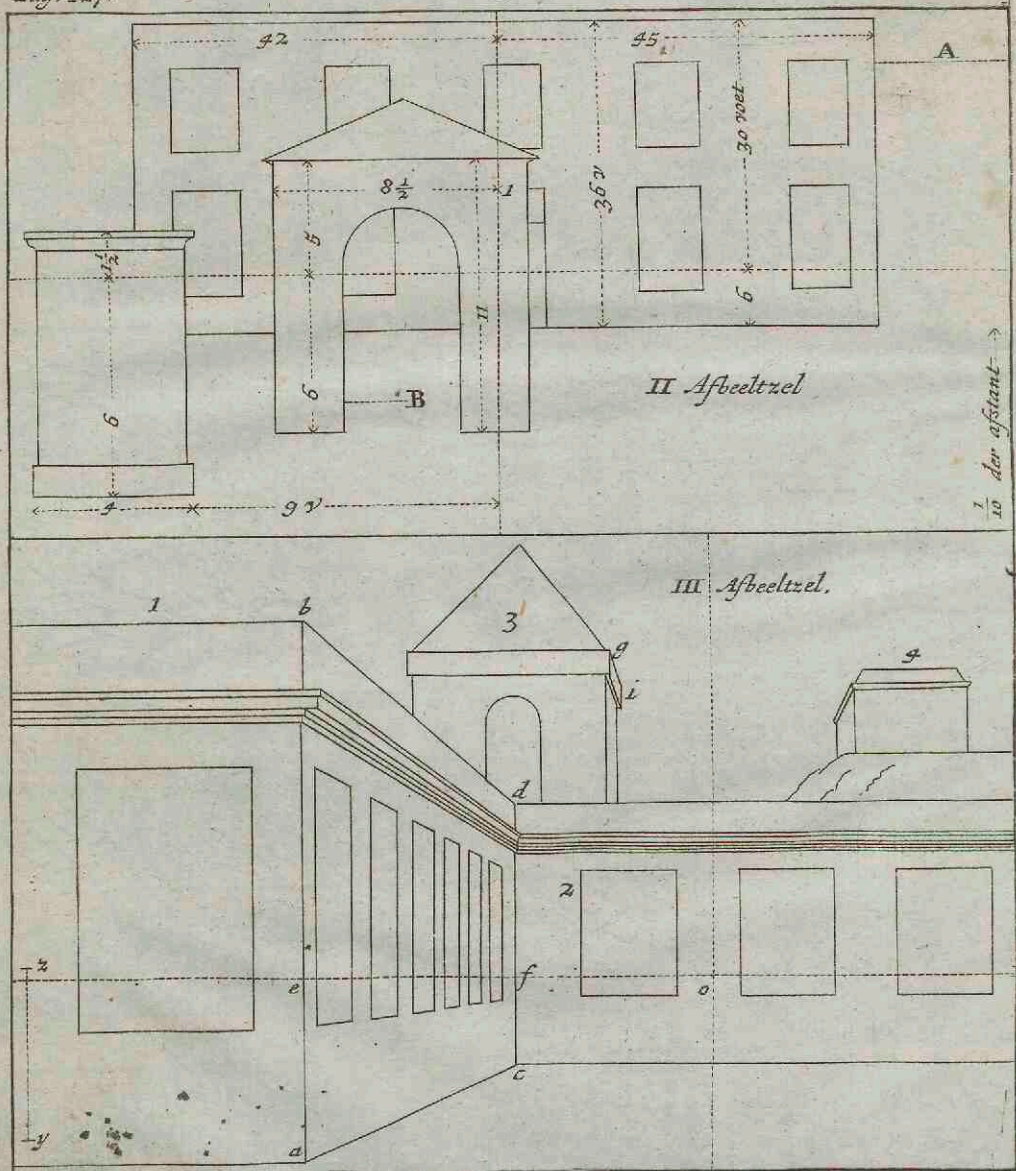 42
45
A
36 v
30 voet
8 1/2
1
5
1 1/2
11
6
6
6
B
II Afbeeltzel
4
9 v
1/10 der afstant
III Afbeeltzel.
1
b
3
g
i
4
d
2
z
e
f
o
c
y
a